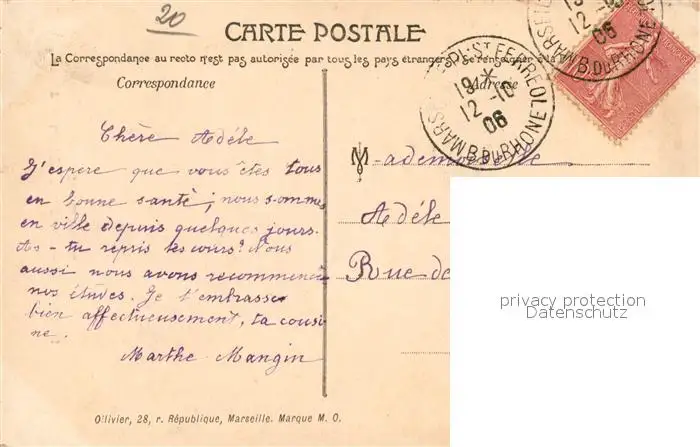 20
CARTE POSTALE
La Correspondance au recto n'est pas autorisée par tous les pays étrangers (Se renseigner à la
Correspondance
Adresse
MARSEILLE PL. St FERREOL
19 *
12 -10
06
B. DU RHONE
12
06
MARS
B. DU RHONE
Chère Adéle
J'espere que vous êtes tous
en bonne santé; nous sommes
en ville depuis quelques jours.
As-tu repris les cours? Nous
aussi nous avons recommencé
nos études. Je t'embrasse
bien affectueusement, ta cousi
ne.
Marthe Mangin
M-ademoiselle
Adéle
Rue de
privacy protection
Datenschutz
Ollivier, 28, r. République, Marseille. Marque M. O.